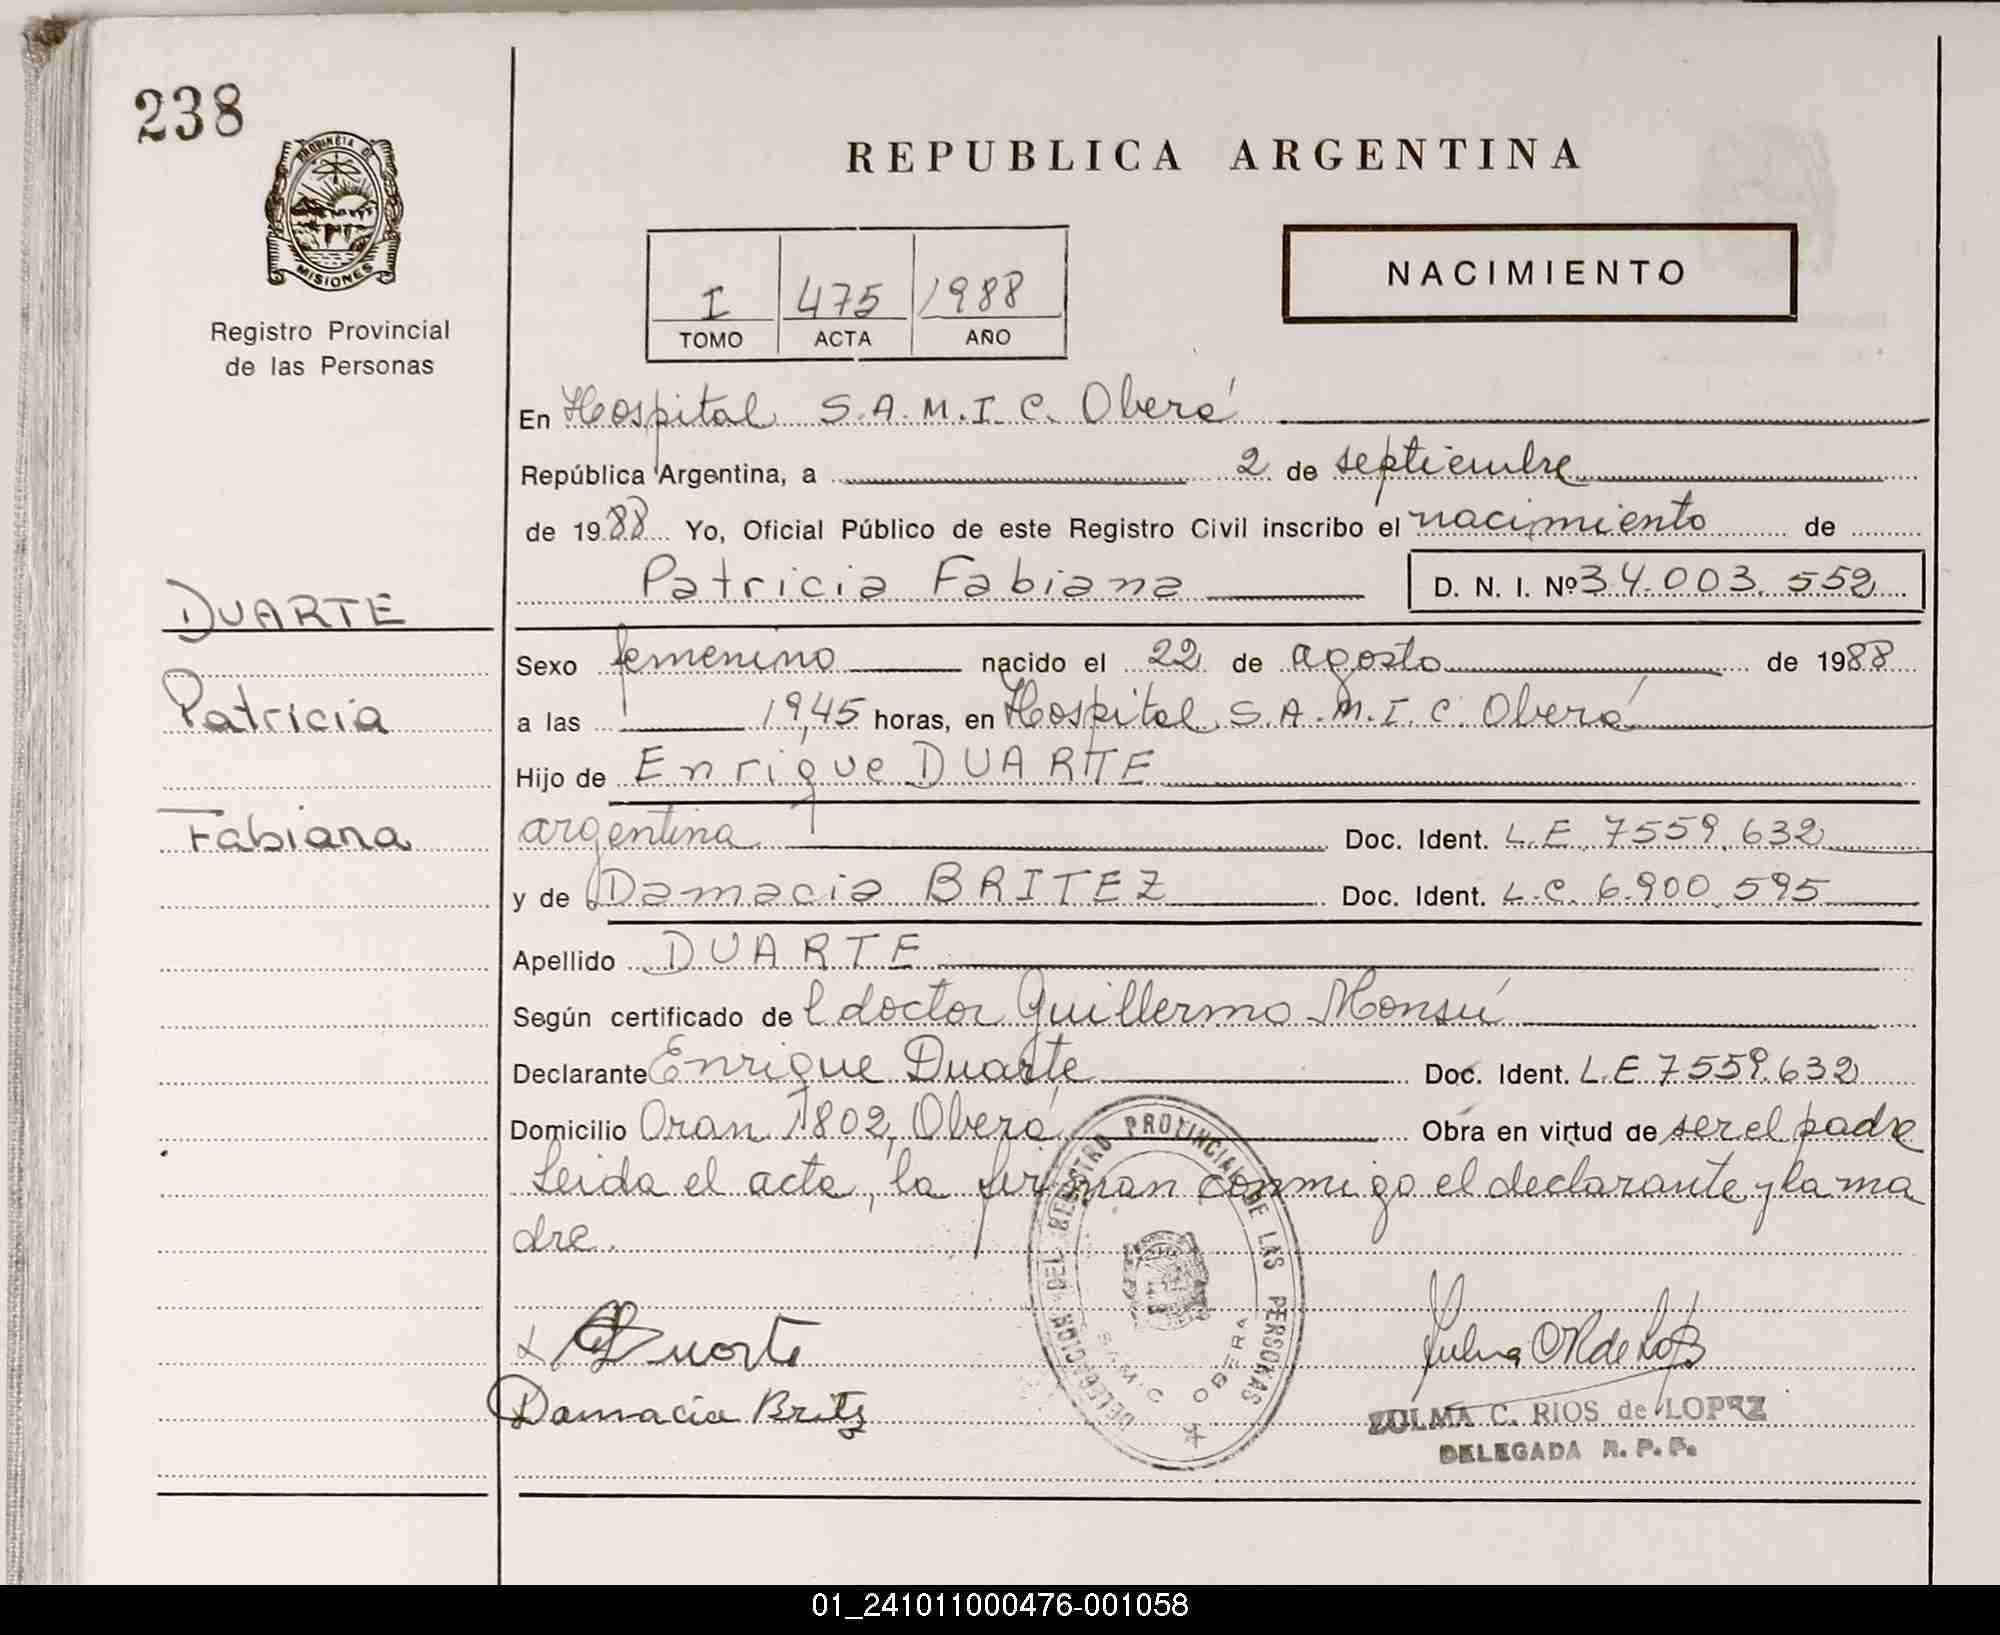 238
PROVINCIA DE
MISIONES
Registro Provincial
de las Personas
DUARTE
Patricia
Fabiana
REPUBLICA ARGENTINA
I 475 1988
TOMO ACTA AÑO
NACIMIENTO
En Hospital S.A.M.I.C. Oberá
República Argentina, a 2 de septiembre
de 1988 Yo, Oficial Público de este Registro Civil inscribo el nacimiento de
Patricia Fabiana D. N. I. Nº 34.003.552
Sexo femenino nacido el 22 de agosto de 1988
a las 19,45 horas, en Hospital S.A.M.I.C. Oberá
Hijo de Enrique DUARTE
argentina Doc. Ident. L.E. 7559.632
y de Damacia BRITEZ Doc. Ident. L.C. 6.900.595
Apellido DUARTE
Según certificado de l doctor Guillermo Monsú
Declarante Enrique Duarte Doc. Ident. L.E 7559.632
Domicilio Oran 1802, Oberá Obra en virtud de ser el padre
Leida el acta, la firman conmigo el declarante y la ma
dre.
DELEGACION DEL REGISTRO PROVINCIAL DE LAS PERSONAS
S.A.M.C OBERA
Duarte
Damacia Britez
ZULMA C. RIOS de LOPEZ
DELEGADA R. P. P.
01_241011000476-001058